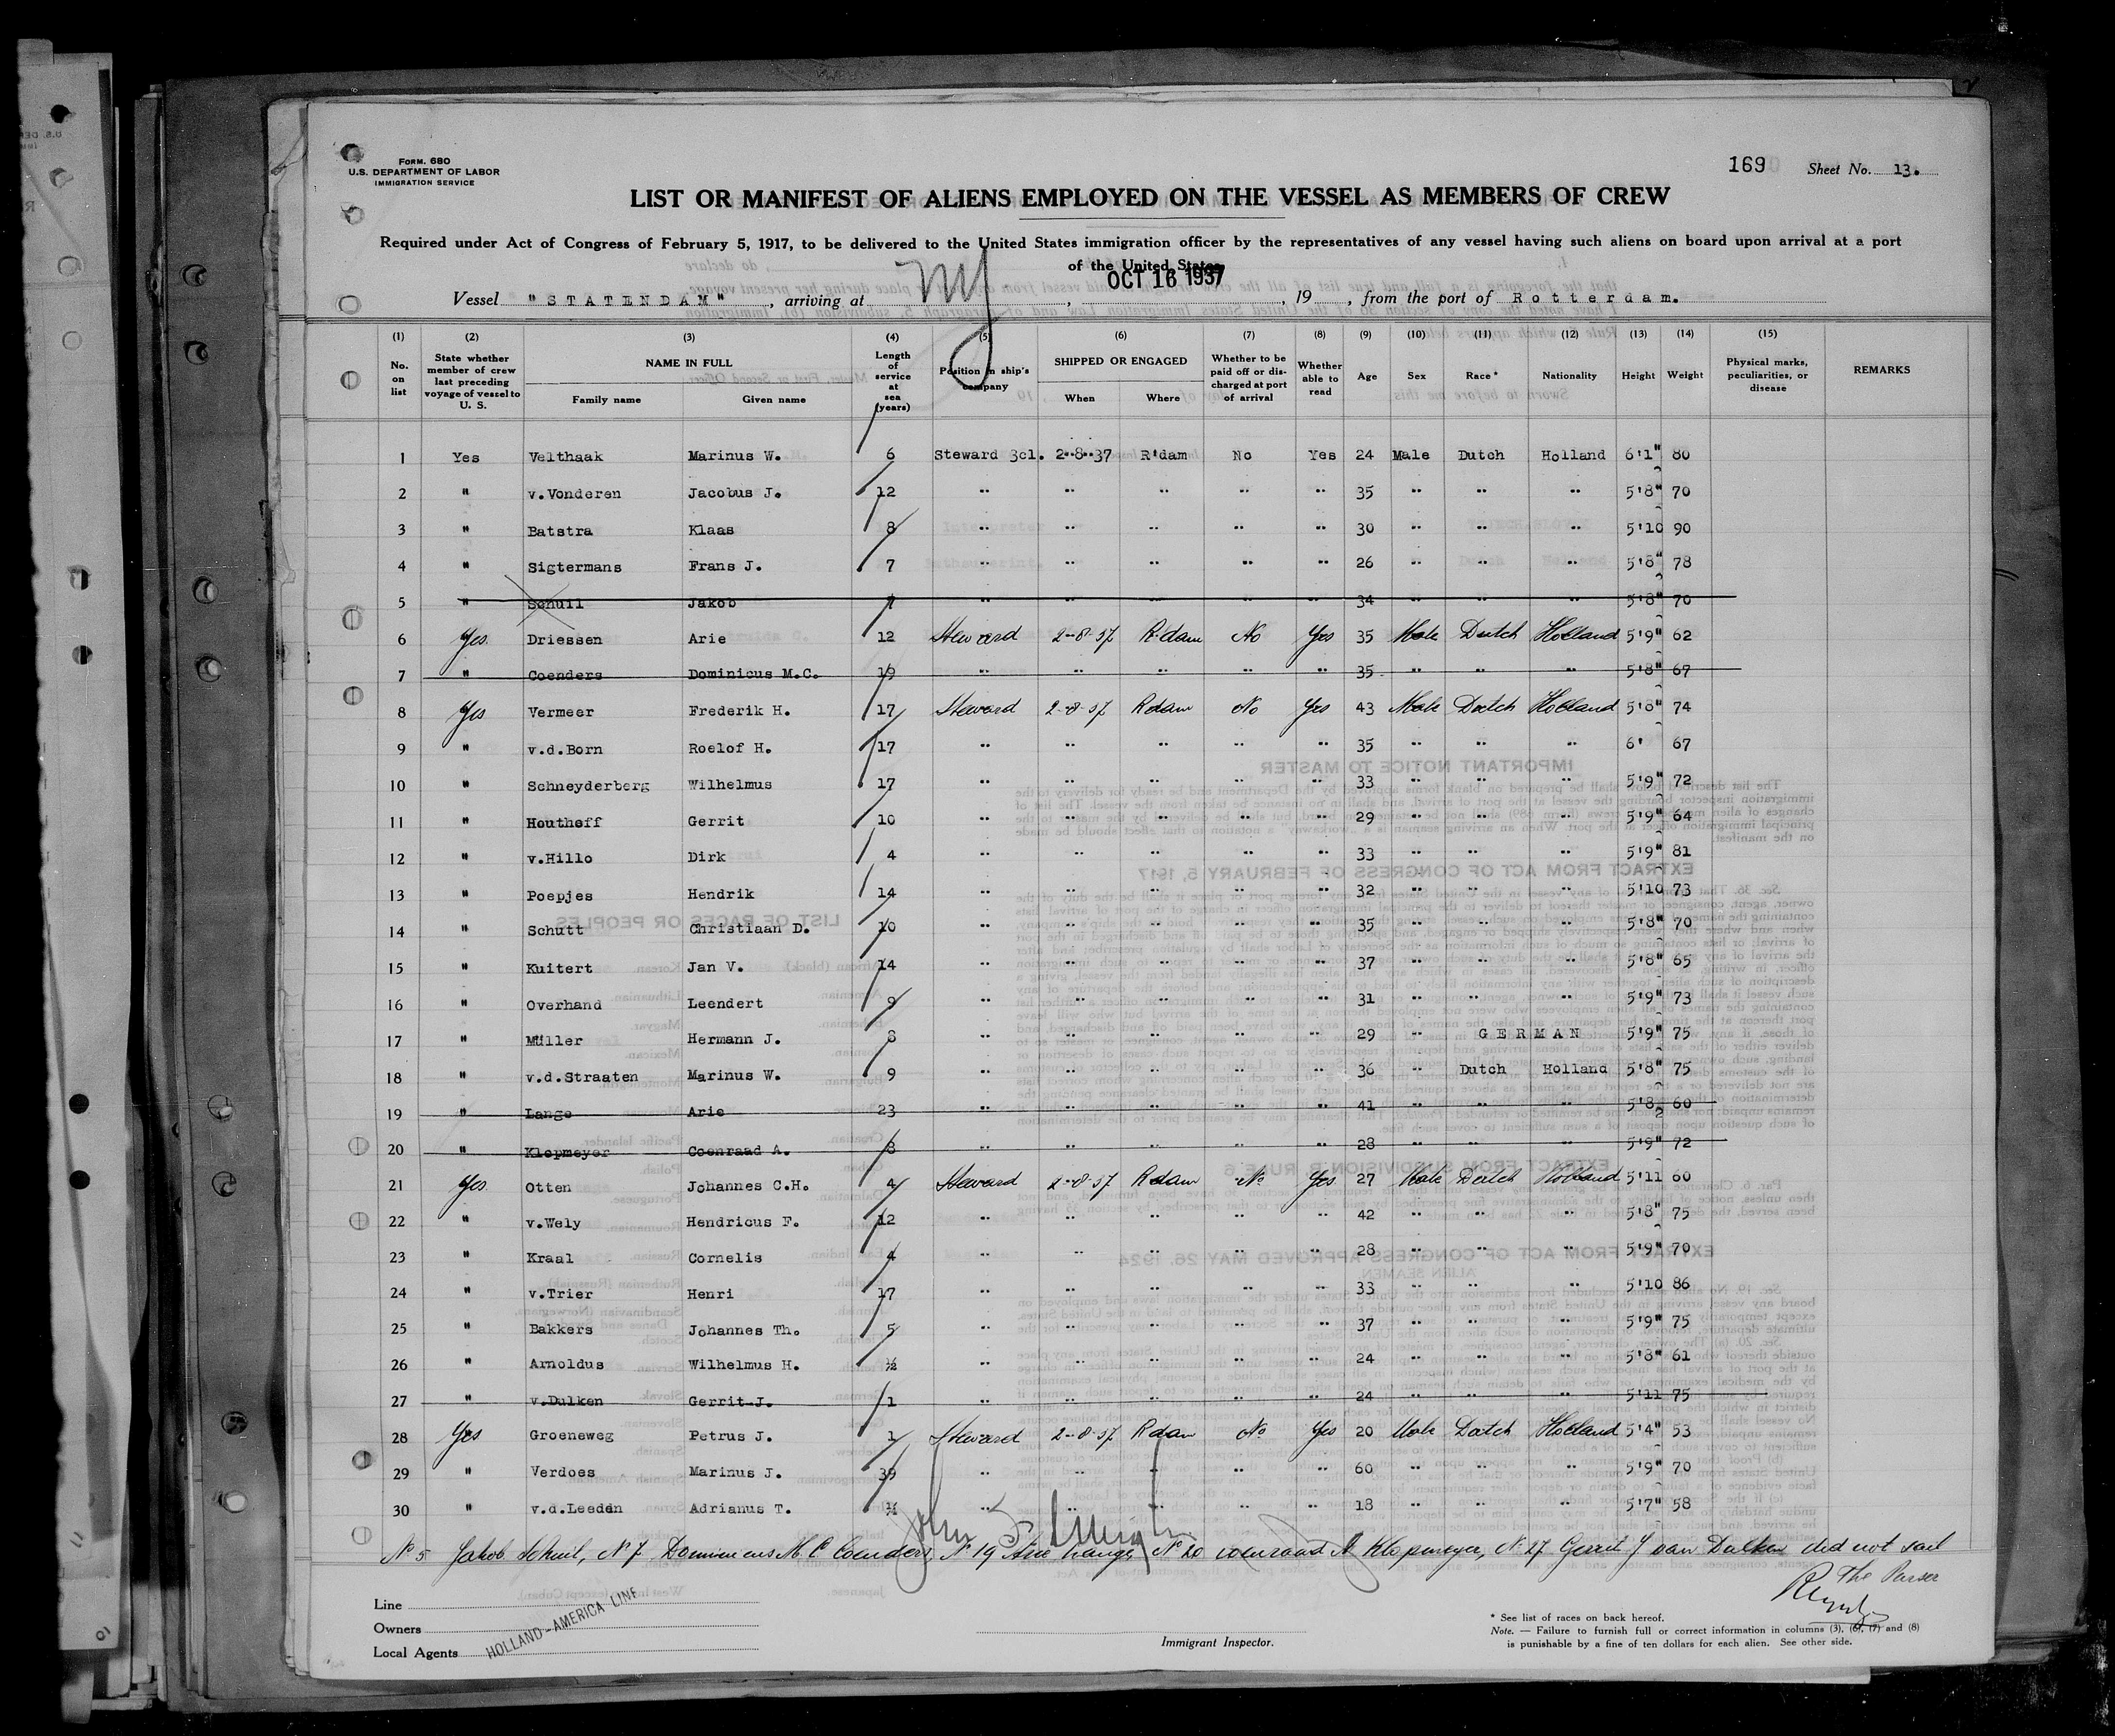 FORM. 680
U.S. DEPARTMENT OF LABOR
IMMIGRATION SERVICE
169 Sheet No. 13.
LIST OR MANIFEST OF ALIENS EMPLOYED ON THE VESSEL AS MEMBERS OF CREW
Required under Act of Congress of February 5, 1917, to be delivered to the United States immigration officer by the representatives of any vessel having such aliens on board upon arrival at a port
of the United States
Vessel "STATENDAM", arriving at NY, OCT 16 1937, 19 , from the port of Rotterdam.
(1) (2) (3) (4) (5) (6) (7) (8) (9) (10) (11) (12) (13) (14) (15)
No. on list | State whether member of crew last preceding voyage of vessel to U. S. | NAME IN FULL Family name Given name | Length of service at sea (years) | Position in ship's company | SHIPPED OR ENGAGED When Where | Whether to be paid off or discharged at port of arrival | Whether able to read | Age | Sex | Race* | Nationality | Height | Weight | Physical marks, peculiarities, or disease | REMARKS
1 Yes Velthaak Marinus W. 6 Steward 3cl. 2-8-37 R'dam No Yes 24 Male Dutch Holland 6'1" 80
2 " v.Vonderen Jacobus J. 12 " " " " " 35 " " " 5'8" 70
3 " Batstra Klaas 8 " " " " " 30 " " " 5'10 90
4 " Sigtermans Frans J. 7 " " " " " 26 " " " 5'8" 78
5 " Schuil Jakob 7 " " " " " 34 " " " 5'8" 70
6 Yes. Driessen Arie 12 Steward 2-8-37 R'dam No Yes 35 Male Dutch Holland 5'9" 62
7 " Coenders Dominicus M.C. 19 " " " " " 35 " " " 5'8" 67
8 Yes Vermeer Frederik H. 17 Steward 2-8-37 Rdam No Yes 43 Male Dutch Holland 5'8" 74
9 " v.d.Born Roelof H. 17 " " " " " 35 " " " 6' 67
10 " Schneyderberg Wilhelmus 17 " " " " " 33 " " " 5'9" 72
11 " Houthoff Gerrit 10 " " " " " 29 " " " 5'9" 64
12 " v.Hillo Dirk 4 " " " " " 33 " " " 5'9" 81
13 " Poepjes Hendrik 14 " " " " " 32 " " " 5'10 73
14 " Schutt Christiaan D. 10 " " " " " 35 " " " 5'8" 70
15 " Kuitert Jan V. 14 " " " " " 37 " " " 5'8" 65
16 " Overhand Leendert 9 " " " " " 31 " " " 5'9" 73
17 " Müller Hermann J. 8 " " " " " 29 " GERMAN 5'9" 75
18 " v.d.Straaten Marinus W. 9 " " " " " 36 " Dutch Holland 5'8" 75
19 " Lange Arie 23 " " " " " 41 " " " 5'8 60
20 " Klopmeyer Coenraad A. 8 " " " " " 28 " " " 5'9" 72
21 Yes. Otten Johannes C.H. 4 Steward 2-8-37 Rdam No Yes 27 Male Dutch Holland 5'11 60
22 " v.Wely Hendricus F. 12 " " " " " 42 " " " 5'8" 75
23 " Kraal Cornelis 4 " " " " " 28 " " " 5'9" 70
24 " v.Trier Henri 17 " " " " " 33 " " " 5'10 86
25 " Bakkers Johannes Th. 5 " " " " " 37 " " " 5'9" 75
26 " Arnoldus Wilhelmus H. ½ " " " " " 24 " " " 5'8" 61
27 " v.Dulken Gerrit J. 1 " " " " " 24 " " " 5'11 75
28 Yes Groeneweg Petrus J. 1 Steward 2-8-37 Rdam No Yes 20 Male Dutch Holland 5'4" 53
29 " Verdoes Marinus J. 39 " " " " " 60 " " " 5'9" 70
30 " v.d.Leeden Adrianus T. ½ " " " " " 18 " " " 5'7" 58
No 5 Jakob Schuil, No 7 Dominicus M. C Coenders, No 19 Arie Lange, No 20 Coenraad A Klopmeyer, No 27 Gerrit J van Dulken did not sail
The Purser
Line
Owners
Local Agents HOLLAND-AMERICA LINE
Immigrant Inspector.
* See list of races on back hereof.
Note. — Failure to furnish full or correct information in columns (3), (6), (7) and (8)
is punishable by a fine of ten dollars for each alien. See other side.